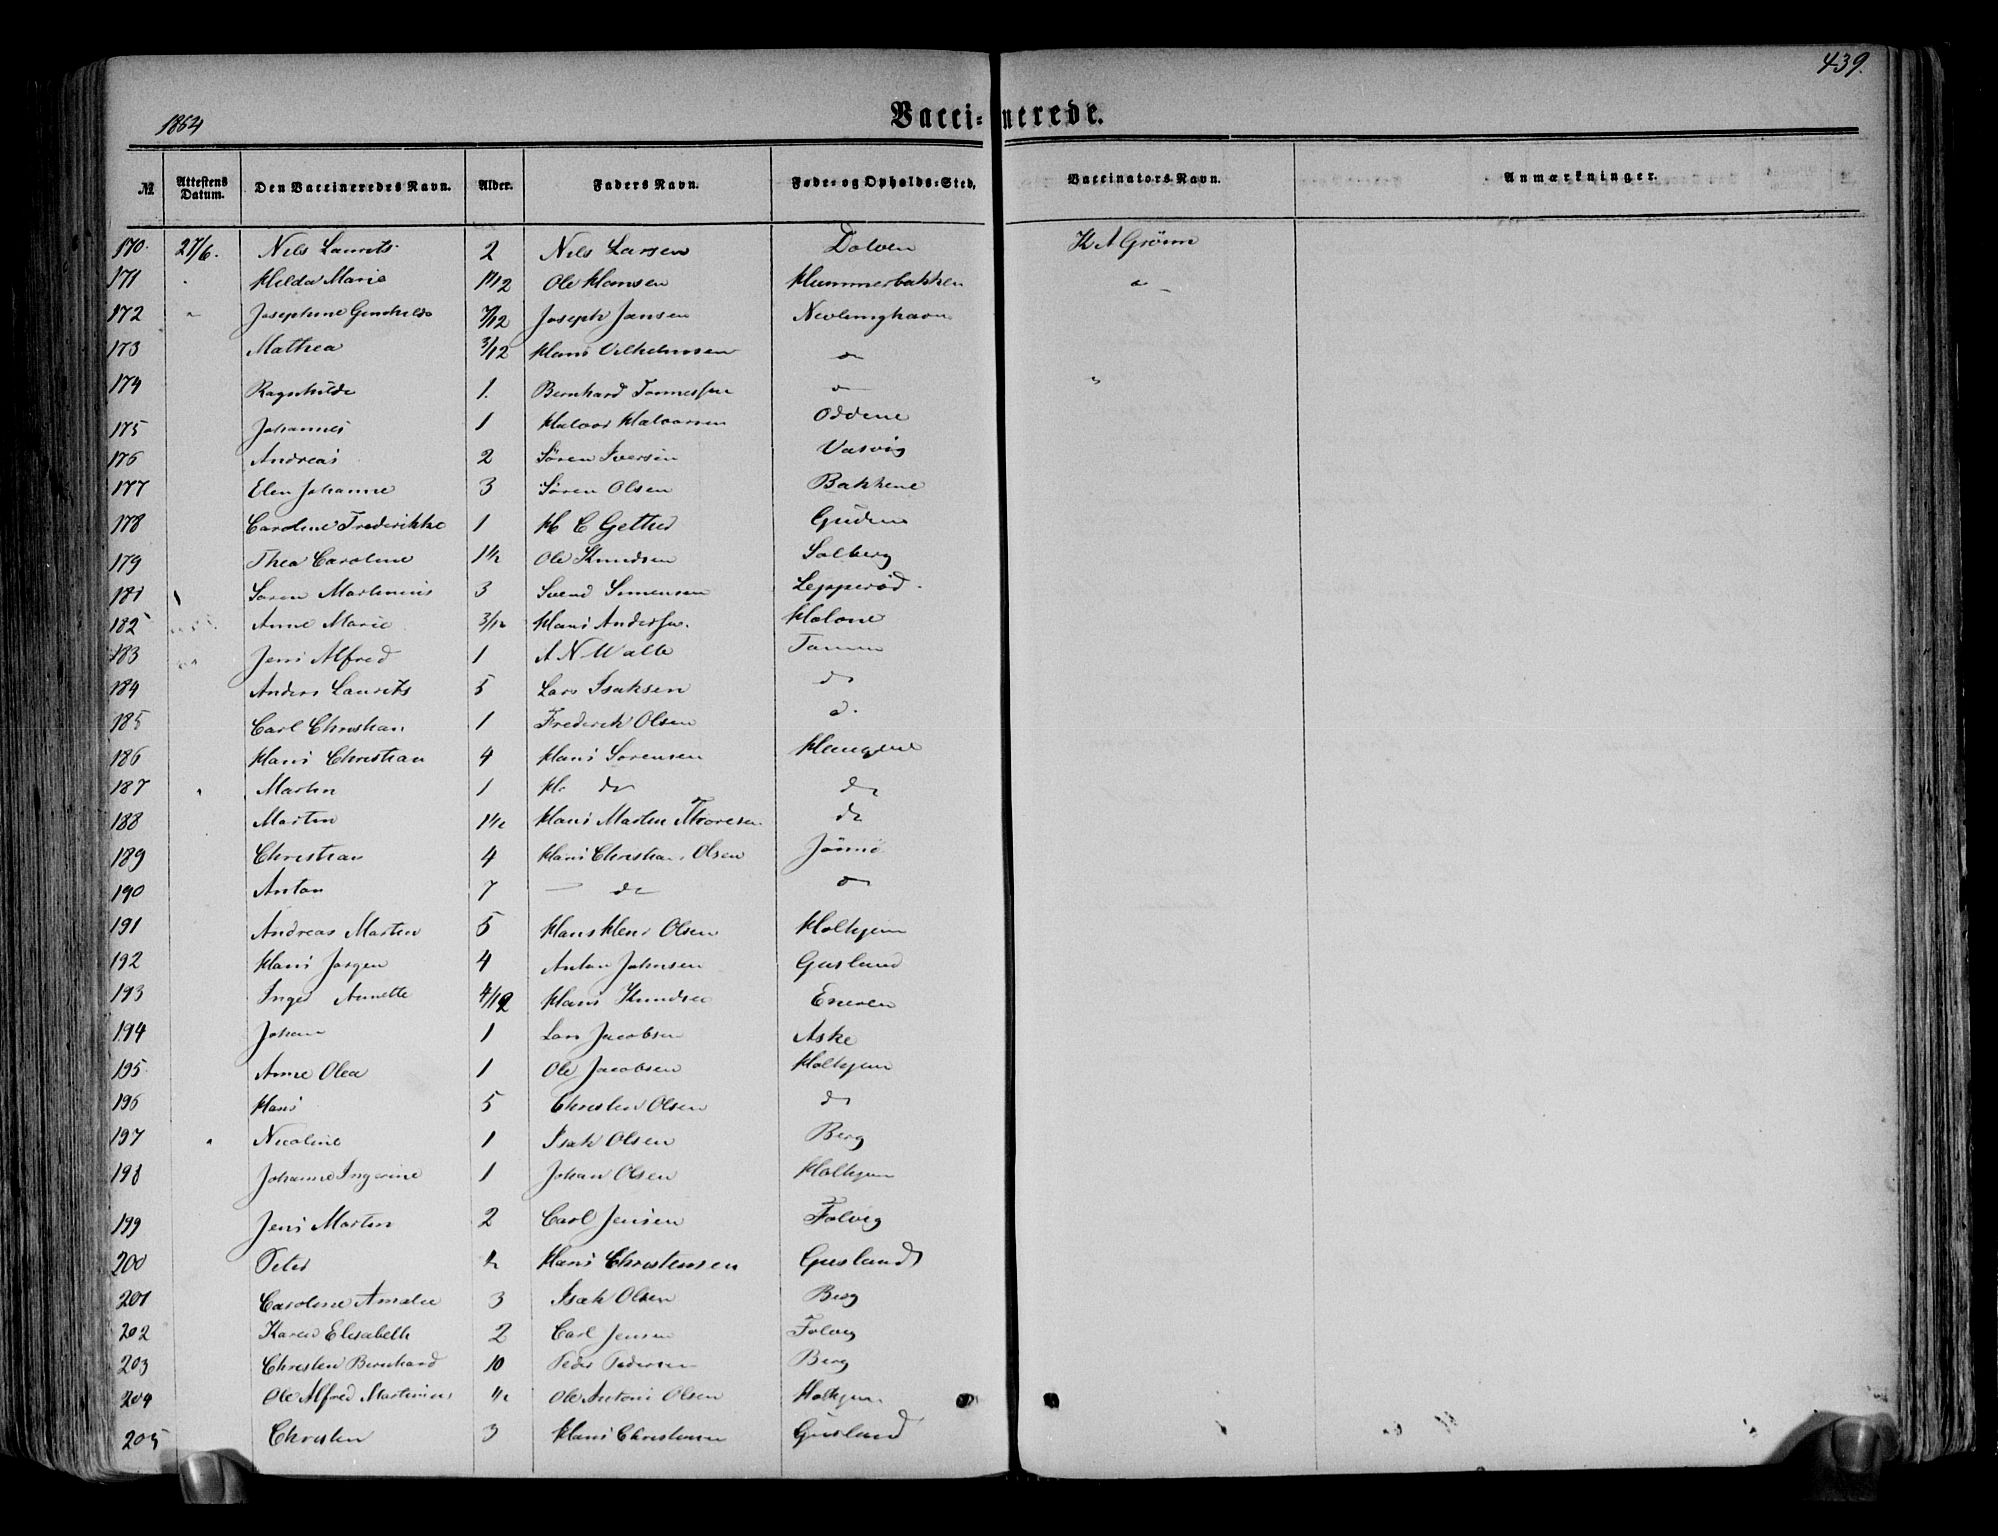 439.
1864 Vacci= nerede.
№ Attestens Datum. Den Vaccineredes Navn. Alder. Faders Navn. Føde= og Opholds=Sted. Vaccinators Navn. Anmærkninger.
170. 27/6. Nils Laurits 2 Nils Larsen Dolven
171 Hilda Marie Ole Hansen Hummerbakken
172 Josephine 7/12 Joseph Jansen Nevlunghavn
173 Mathea 3/12 Hans Vilhelmsen do
174 Ragnhilde 1. Bernhard Tonnessen do
175 Johannes 1 Halvor Halvorsen Oddene
176 Andreas 2 Sören Iversen Vasvig
177 Elen Johanne 3 Sören Olsen Bakkene
178 Caroline Frederikke 1 H C Gether
179 Thea Caroline 1½ Ole Knudsen Solberg
181 Søren Martinius 3 Svend Simensen Lepperöd
182 Anne Marie 3/12 Hans Anderssen
183 Jens Alfred 1 A N Walle Tanum
184 Anders Laurits 5 Lars Isaksen do
185 Carl Christian 1 Frederik Olsen d.
186 Hans Christian 4 Hans Sorensen Haugene
187 Martin 1 H. do do
188 Martin 1½ Hans Martin Thoresen do
189 Christian 4 Hans Christian Olsen
190 Anton 7 — do do
191 Andreas Martin 5 Hans Olsen Holhjem
192 Hans Jørgen 4 Anton Johnsen Gusland
193 Inger Annette 4/12 Hans Knudsen
194 Johan 1 Lars Jacobsen Aske
195 Anne Olea 1 Ole Jacobsen Holhjem
196 Hans 5 Christen Olsen do
197 Nicoline 1 Isak Olsen Berg
198 Johanne Ingerine 1 Johan Olsen Holhjem
199 Jens Martin 2 Carl Jensen Folvig
200 Peter ½ Hans Christensen Gusland
201 Caroline Amalie 3 Isak Olsen Berg
202 Karen Elisabeth 2 Carl Jensen Folvig
203 Christen Bernhard 10 Peder Pedersen Berg
204 Ole Alfred Martinius ½ Ole Antoni Olsen Holhjem
205 Christen 3 Hans Christensen Gusland